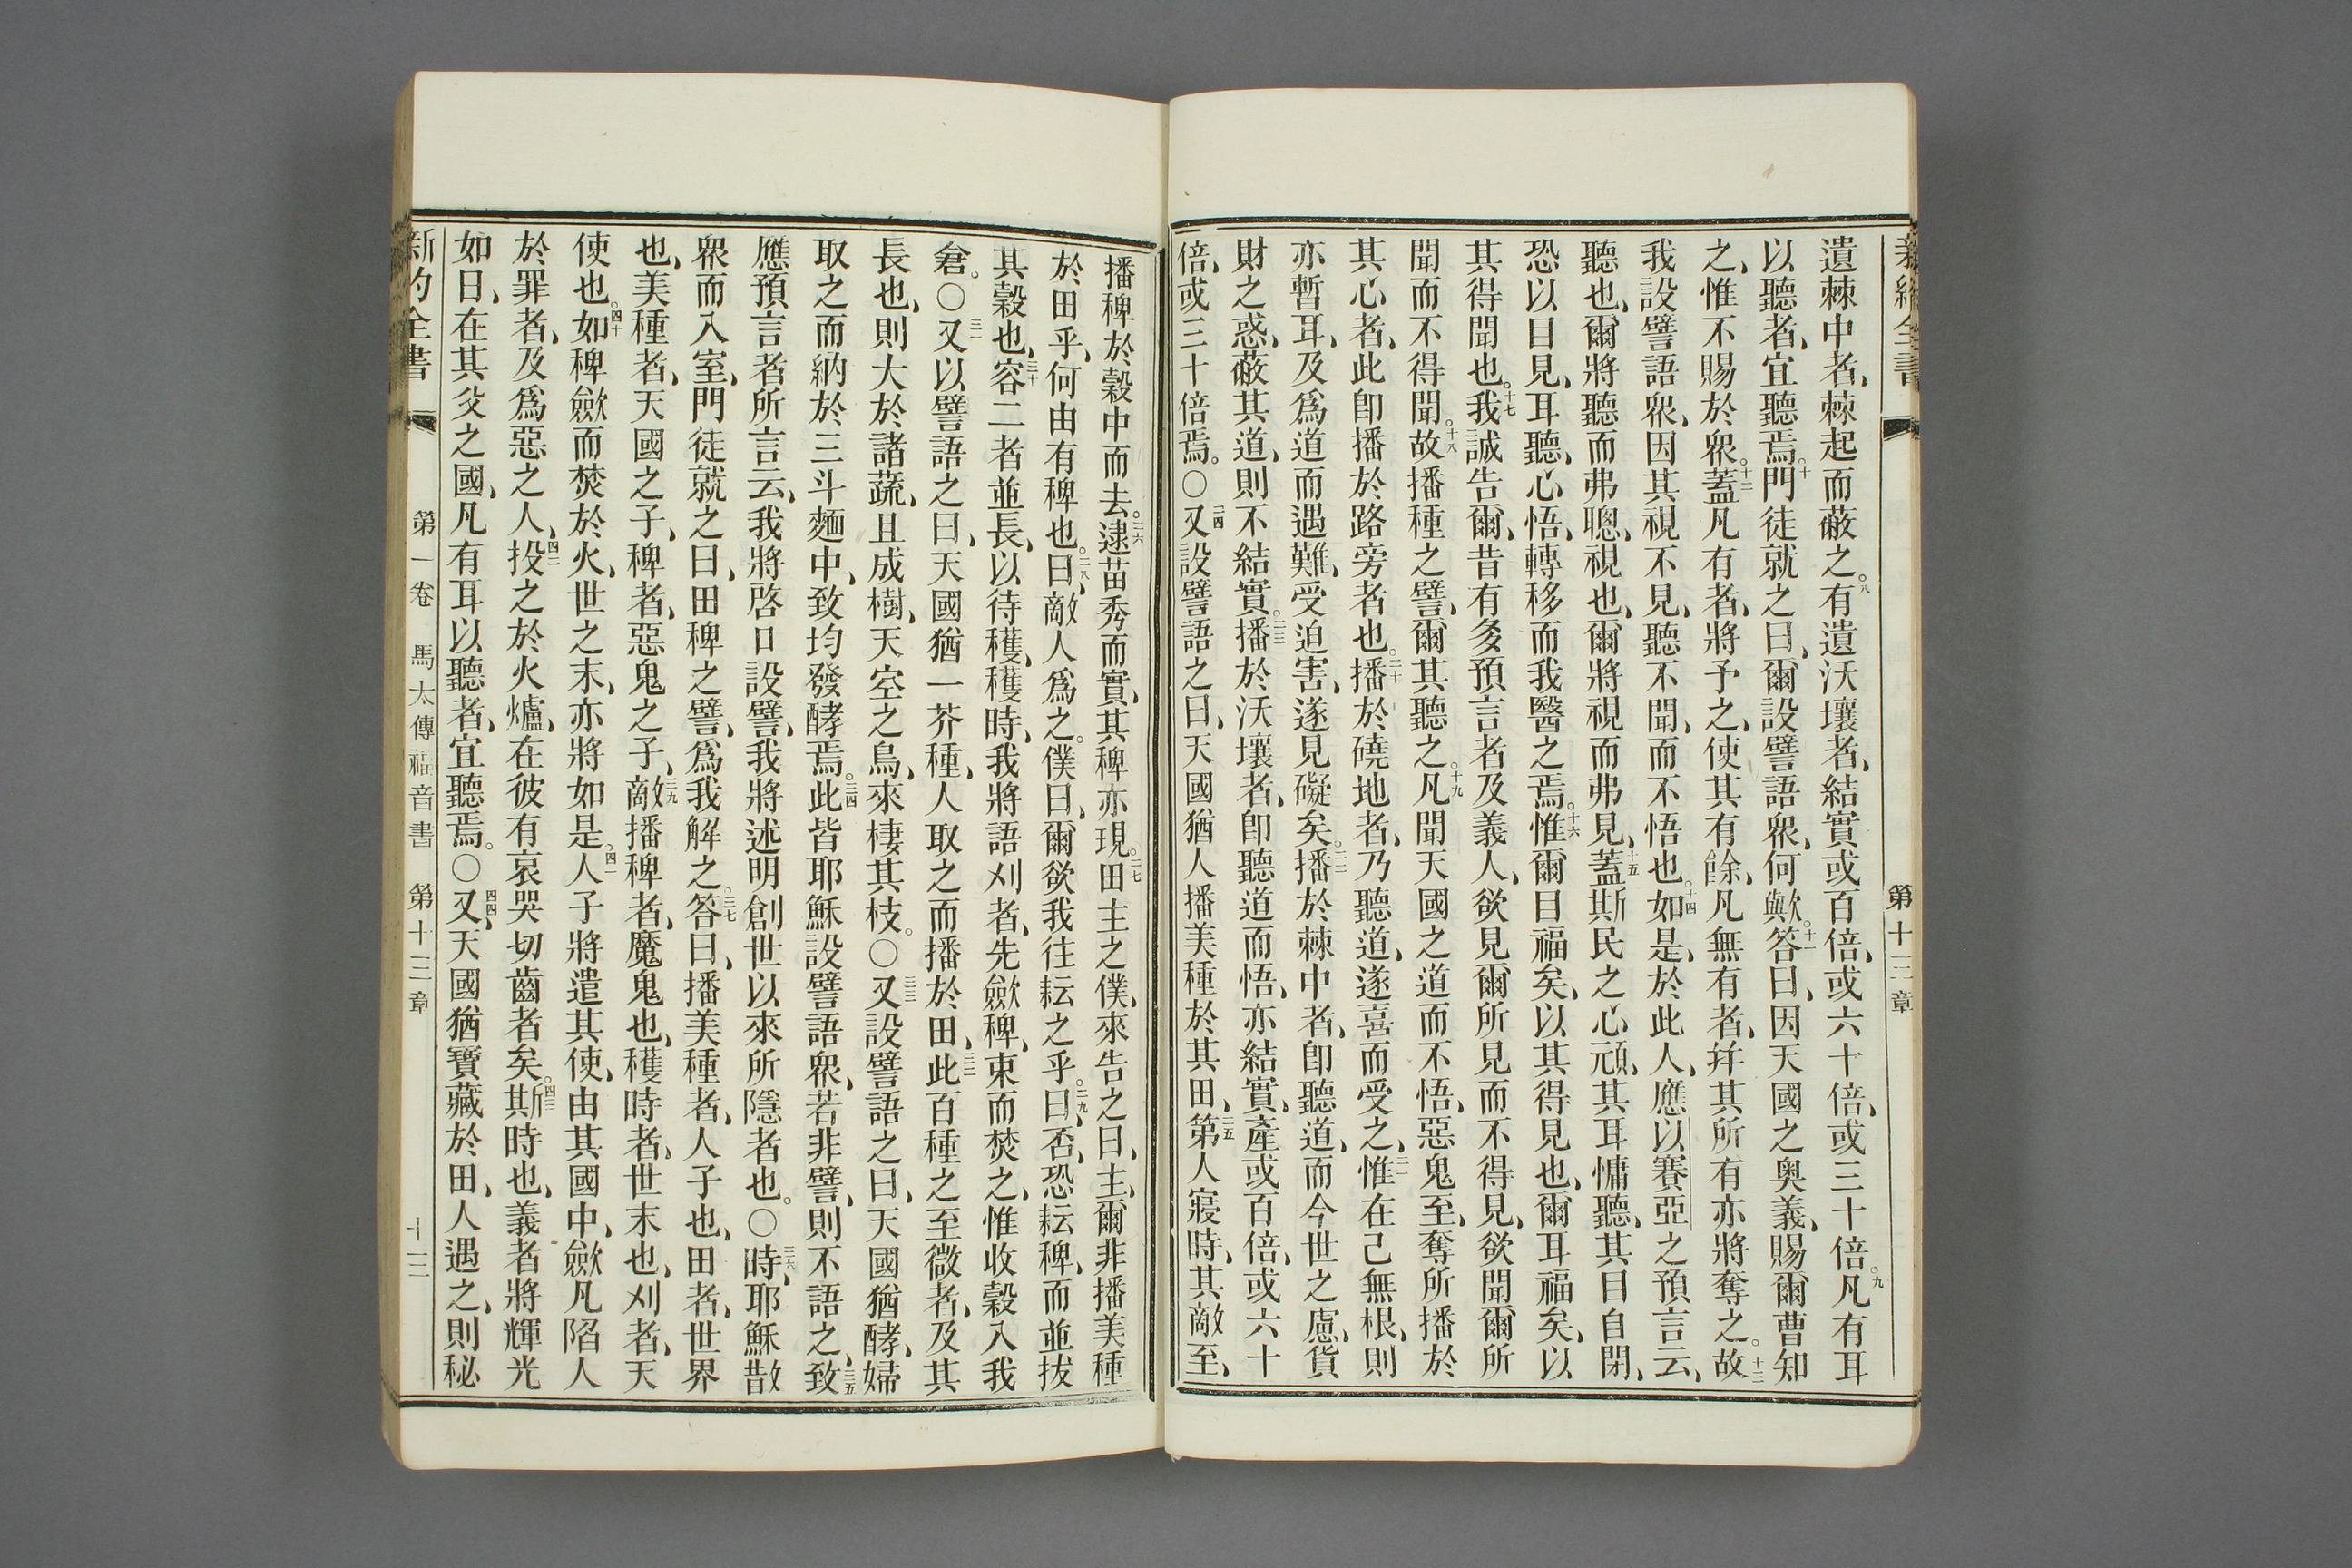 新約全書 第十三章
遺棘中者、棘起而蔽之。八有遺沃壤者、結實或百倍、或六十倍、或三十倍。九凡有耳
以聽者、宜聽焉。十門徒就之曰、爾設譬語衆、何歟。十一答曰、因天國之奧義、賜爾曹知
之、惟不賜於衆。十二蓋凡有者、將予之、使其有餘、凡無有者、幷其所有亦將奪之。十三故
我設譬語衆、因其視不見、聽不聞、而不悟也。十四如是、於此人、應以賽亞之預言云、
聽也、爾將聽而弗聰、視也、爾將視而弗見、十五蓋斯民之心頑、其耳慵聽、其目自閉、
恐以目見、耳聽、心悟、轉移而我醫之焉。十六惟爾目福矣、以其得見也、爾耳福矣、以
其得聞也。十七我誠告爾、昔有多預言者及義人、欲見爾所見而不得見、欲聞爾所
聞而不得聞。十八故播種之譬、爾其聽之。十九凡聞天國之道而不悟、惡鬼至、奪所播於
其心者、此卽播於路旁者也。二十播於磽地者、乃聽道、遂喜而受之、二一惟在己無根、則
亦暫耳、及爲道而遇難、受迫害、遂見礙矣。二二播於棘中者、卽聽道、而今世之慮、貨
財之惑、蔽其道、則不結實。二三播於沃壤者、卽聽道而悟、亦結實、產或百倍、或六十
倍、或三十倍焉。〇二四又設譬語之曰、天國猶人播美種於其田、二五第人寢時、其敵至、
播稗於穀中而去。二六逮苗秀而實、其稗亦現。二七田主之僕、來告之曰、主、爾非播美種
於田乎、何由有稗也。二八曰、敵人爲之。僕曰、爾欲我往耘之乎。二九曰、否、恐耘稗、而並拔
其穀也、三十容二者並長、以待穫、穫時、我將語刈者、先斂稗、束而焚之、惟收穀入我
倉。〇三一又以譬語之曰、天國猶一芥種、人取之而播於田、三二此百種之至微者、及其
長也、則大於諸蔬、且成樹、天空之鳥、來棲其枝。〇三三又設譬語之曰、天國猶酵、婦
取之而納於三斗麵中、致均發酵焉。三四此皆耶穌設譬語衆、若非譬、則不語之、三五致
應預言者所言云、我將啓口設譬、我將述明創世以來所隱者也。〇三六時、耶穌散
衆而入室、門徒就之曰、田稗之譬、爲我解之。三七答曰、播美種者、人子也、田者、世界
也、美種者、天國之子、稗者、惡鬼之子、三九敵播稗者、魔鬼也、穫時者、世末也、刈者、天
使也。四十如稗斂而焚於火、世之末、亦將如是。四一人子將遣其使、由其國中、斂凡陷人
於罪者、及爲惡之人、四二投之於火爐、在彼有哀哭切齒者矣。四三斯時也、義者將輝光
如日、在其父之國、凡有耳以聽者、宜聽焉。〇四四又、天國猶寶藏於田、人遇之、則秘
新約全書 第一卷 馬太傳福音書 第十三章 十三